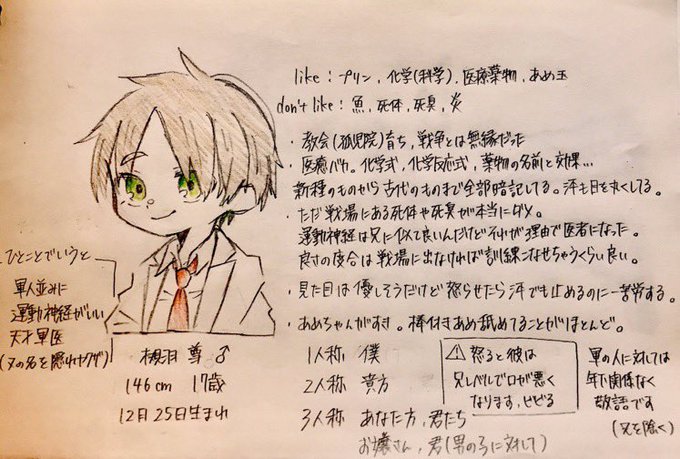 like : プリン, 化学(科学), 医療薬物, あめ玉
don't like : 魚, 死体, 死臭, 炎
・教会(孤児院)育ち, 戦争とは無縁だった
・医療バカ。化学式, 化学反応式, 薬物の名前と効果…
新種のものから古代のものまで全部暗記してる。汗も目を丸くしてる。
・ただ戦場にある死体や死臭が本当にダメ。
運動神経は兄に似て良いんだけどそれが理由で医者になった。
良さの度合は戦場に出なければ訓練こなせちゃうくらい良い。
・見た目は優しそうだけど怒らせたら汗でも止めるのに一苦労する。
・あめちゃんがすき。棒付きあめ舐めてることがほとんど。
ひとことでいうと
軍人並みに
運動神経がいい
天才軍医
(又の名を隠れヤクザ)
尊 ♂
146cm 17歳
12月25日生まれ
1人称 僕
2人称 貴方
3人称 あなた方, 君たち
お嬢さん, 君(男の子に対して)
⚠ 怒ると彼は
兄レベルで口が悪く
なります, ビビる
軍の人に対しては
年下関係なく
敬語です
(兄を除く)